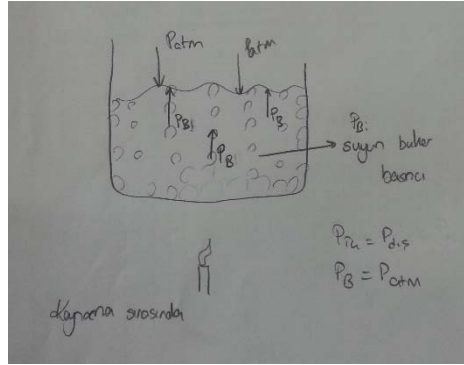 Patm Patm
PB PB
PB
PB: suyun buhar
basıncı
Piç = Pdış
PB = Patm
Kaynama sırasında